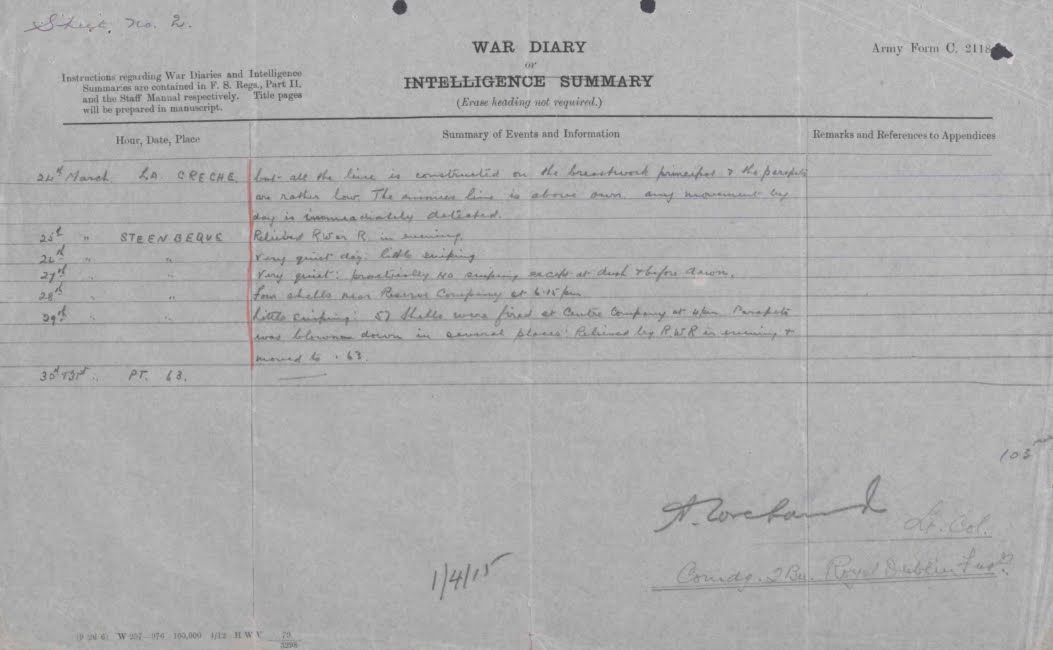 Sheet No. 2.
WAR DIARY
or
INTELLIGENCE SUMMARY
(Erase heading not required.)
Army Form C. 2118
Instructions regarding War Diaries and Intelligence
Summaries are contained in F. S. Regs., Part II.
and the Staff Manual respectively. Title pages
will be prepared in manuscript.
Hour, Date, Place
Summary of Events and Information
Remarks and References to Appendices
24th March LA CRECHE. but all the line is constructed on the breastwork principal & the parapets
are rather low. The enemies line is above ours. any movement by
day is immeadiately detected.
25th " STEENBEQUE Relieved R War R. in evening
26th " " Very quiet day: little sniping
27th " " Very quiet: practically no sniping except at dusk & before dawn.
28th " " Four shells near Reserve Company at 6.15 pm
29th " " Little sniping: 57 Shells were fired at Centre Company at 4pm Parapets
was blown down in several places: Relieved by R.W.R in evening &
moved to . 63.
30th & 31st " PT. 63. —
103
Lt. Col.
Comdg. 2 Bn. Royal Dublin Fusrs
1/4/15
(9 26 6) W 257—976 100,000 4/12 H W V 79/3298